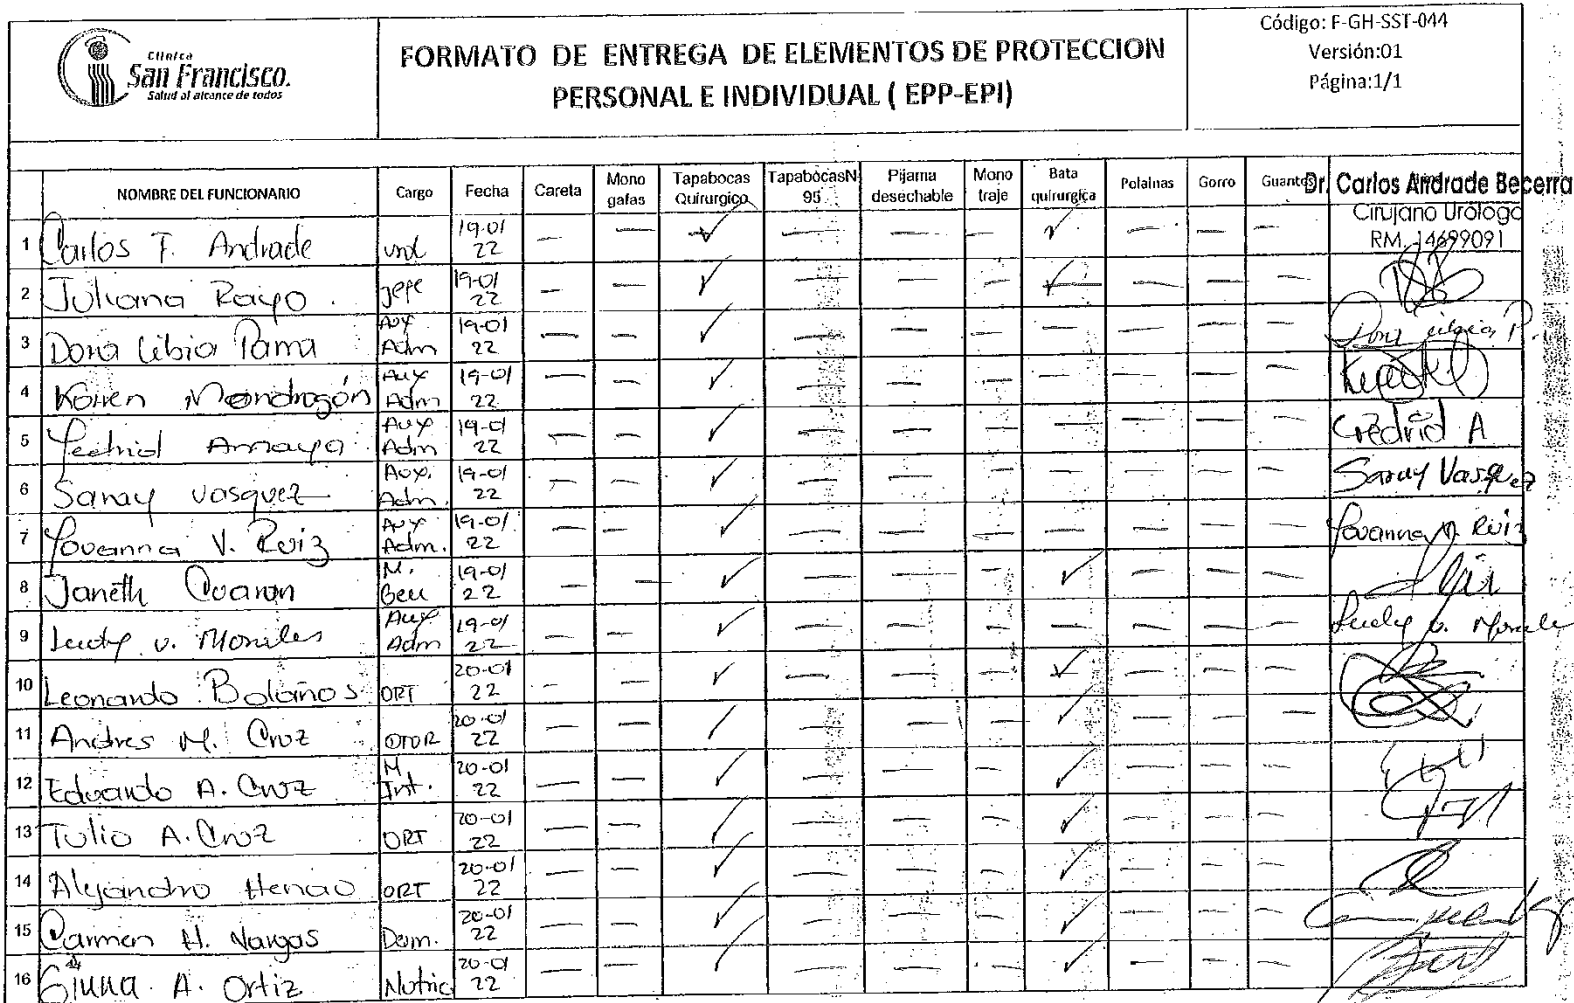 Clinica
San Francisco.
Salud al alcance de todos
FORMATO DE ENTREGA DE ELEMENTOS DE PROTECCION
PERSONAL E INDIVIDUAL ( EPP-EPI)
Código: F-GH-SST-044
Versión:01
Página:1/1
NOMBRE DEL FUNCIONARIO Cargo Fecha Careta Mono gafas Tapabocas Quirurgico TapabocasN 95 Pijama desechable Mono traje Bata quirurgica Polainas Gorro Guantes
Dr. Carlos Andrade Becerra
Cirujano Urologo
RM. 14699091
1 Carlos F. Andrade 19-01 22 — — ✓ — — — ✓ — — —
2 Juliana Rayo. jefe 19-01 22 — — ✓ — — — ✓ — — —
3 Dora Libia Parra Aux Adm 19-01 22 — — ✓ — — — — — — —
4 Karen Mondragón Aux Adm 19-01 22 — — ✓ — — — — — — —
5 Amaya Aux Adm 19-01 22 — — ✓ — — — — — — — A
6 Saray Vasquez Aux. Adm. 19-01 22 — — ✓ — — — — — — — Saray Vasquez
7 Yovanna V. Ruiz Aux Adm. 19-01 22 — — ✓ — — — — — — — Yovanna V. Ruiz
8 Janeth M. 19-01 22 — — ✓ — — — ✓ — — —
9 Leidy v. Morales Aux Adm 19-01 22 — — ✓ — — — — — — — Leidy v. Morales
10 Leonardo Bolaños ORT 20-01 22 — — ✓ — — — ✓ — — —
11 Andres M. Cruz OTOR 20-01 22 — — ✓ — — — ✓ — — —
12 Eduardo A. Cruz M Int. 20-01 22 — — ✓ — — — ✓ — — —
13 Tulio A. Cruz ORT 20-01 22 — — ✓ — — — ✓ — — —
14 Alejandro Henao ORT 20-01 22 — — ✓ — — — ✓ — — —
15 Carmen H. Vargas 20-01 22 — — ✓ — — — ✓ — — —
16 Giuna A. Ortiz Nutric 20-01 22 — — ✓ — — — ✓ — — —